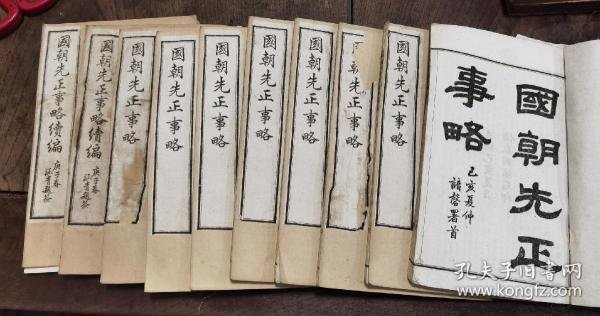 國朝先正事略續編
庚子春
國朝先正事略續編
庚子春
國朝先正事略
國朝先正事略
國朝先正事略
國朝先正事略
國朝先正事略
朝先正事略
國朝先正事略
國朝先正
事略
己亥夏仲
署首
孔夫子旧书网
www.kongfz.com